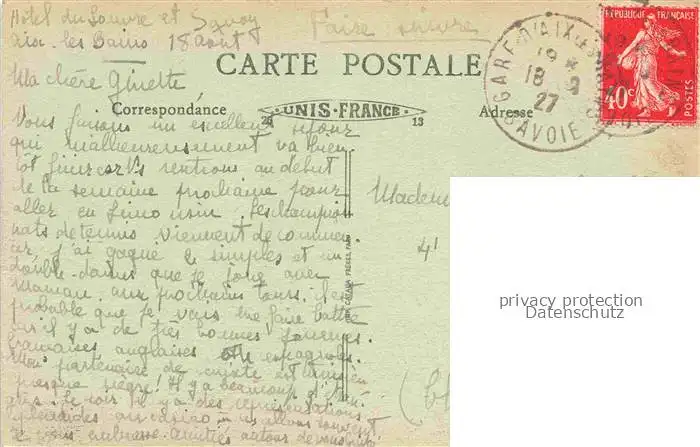 Hotel du Louvre et Savoy
Aix les Bains 18 août
Faire suivre
Ma chère Ginette
CARTE POSTALE
Correspondance
UNIS-FRANCE
26 13
Adresse
GARE D'AIX
18
27
SAVOIE
RÉPUBLIQUE FRANÇAISE
40c
POSTES
Vous faisons un excellent séjour
qui malheureusement va bien
tôt finir car ns rentrons au début
de la semaine prochaine pour
aller en Limousin. Les champion
nats de tennis viennent de commen
cer, j'ai gagné le simples et un
double-dames que je joue avec
Maman, aux prochains tours il est
probable que je vais me faire battre
car il y a de très bonnes joueuses
françaises anglaises espagnoles.
Mon partenaire de mixte est
presque nègre! Il y a beaucoup
le soir il y a des représentations
splendides au casino ns allons souvent
je vous embrasse amitiés autour de vous
Madem
41
privacy protection
Datenschutz